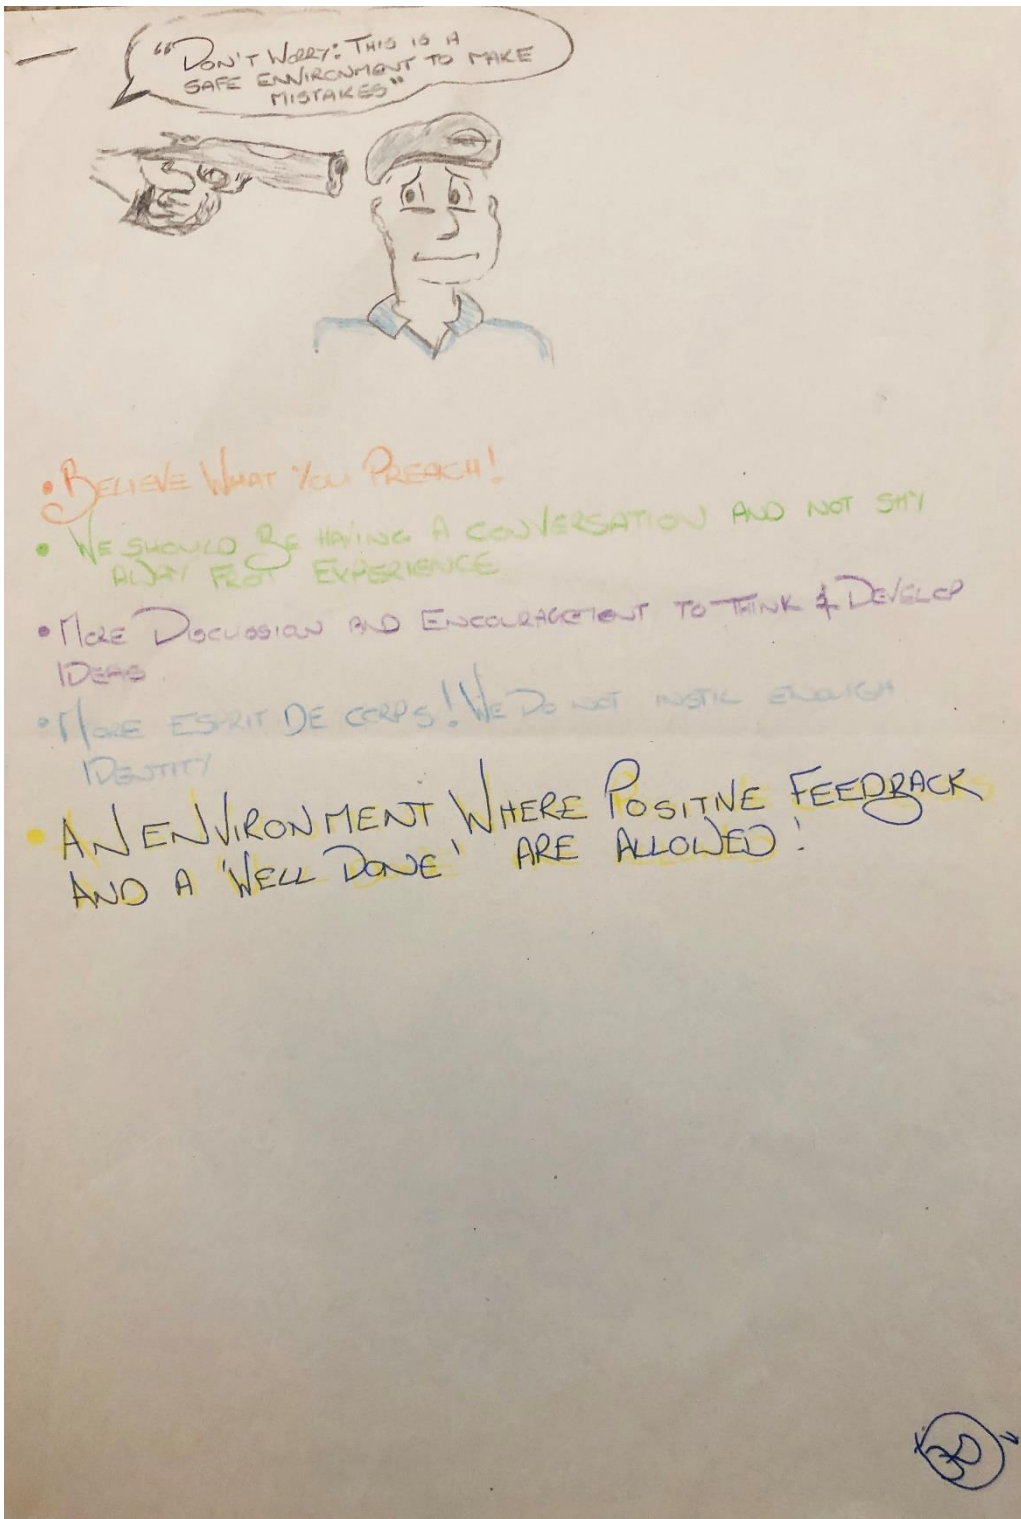 "DON'T WORRY: THIS IS A
SAFE ENVIRONMENT TO MAKE
MISTAKES"
• BELIEVE WHAT YOU PREACH!
• WE SHOULD BE HAVING A CONVERSATION AND NOT SHY
AWAY FROM EXPERIENCE
• MORE DISCUSSION AND ENCOURAGEMENT TO THINK & DEVELOP
IDEAS
• MORE ESPRIT DE CORPS! WE DO NOT INSTIL ENOUGH
IDENTITY
• AN ENVIRONMENT WHERE POSITIVE FEEDBACK
AND A 'WELL DONE' ARE ALLOWED!